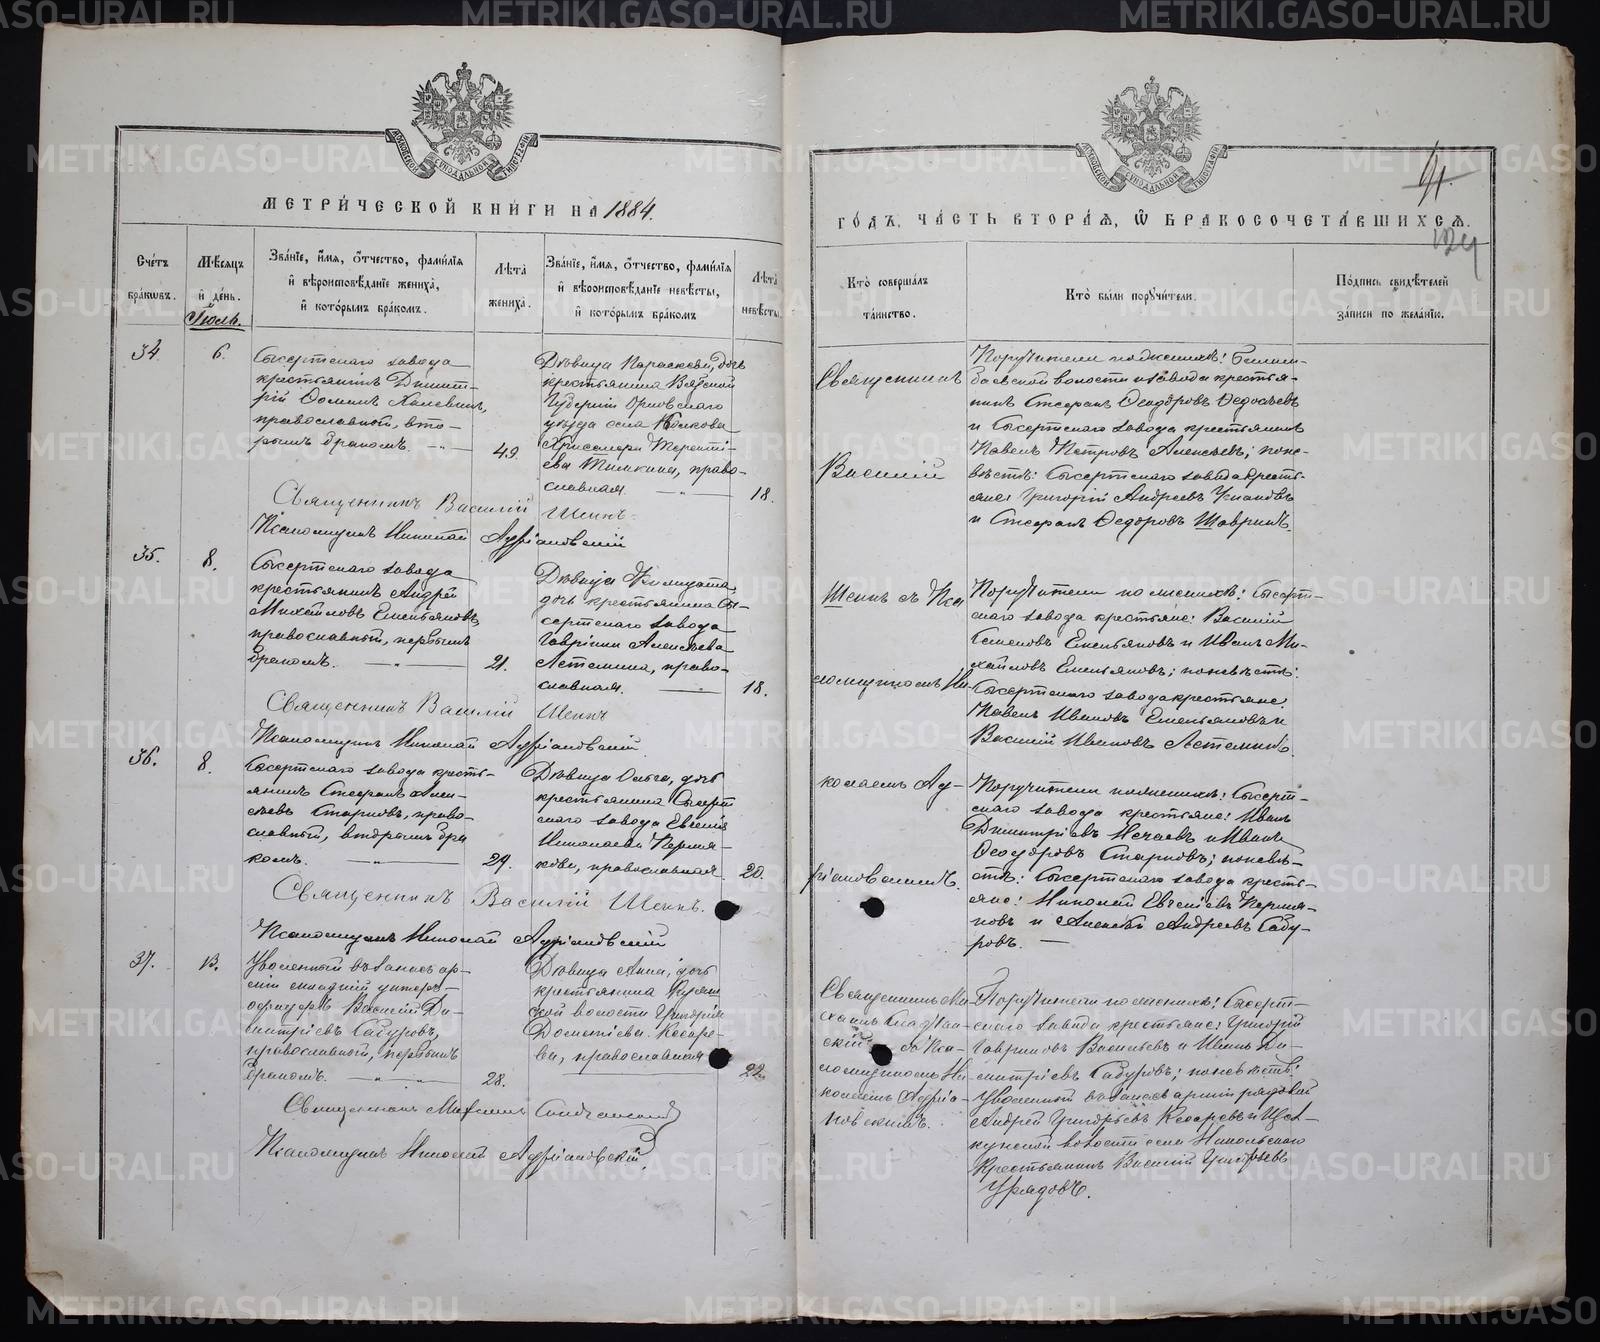 МЕТРИ́ЧЕСКОЙ КНИГИ НА 1884.
Счетъ браковъ.
Мѣсяцъ и день.
Іюль.
Званіе, имя, отчество, фамилія и вѣроисповѣданіе жениха, и которымъ бракомъ.
Лѣта жениха.
Званіе, имя, отчество, фамилія и вѣроисповѣданіе невѣсты, и которымъ бракомъ
Лѣта невѣсты
34.
6.
Сысертскаго завода
крестьянинъ Димит-
рій Ѳоминъ
православный, вто-
рымъ бракомъ.
49.
Дѣвица Параскева, дочь
крестьянина Вятской
Губерніи Орловскаго
уѣзда села
Терентi-
ева право-
славная.
18.
Священникъ Василій Шеинъ
Псаломщикъ Николай Адріановскій
35.
8.
Сысертскаго завода
крестьянинъ Андрей
Михайловъ Емельяновъ,
православный, первымъ
бракомъ.
21.
Дѣвица
дочь крестьянина Сы-
сертскаго завода
Гавріила Алексѣева
Летемина, право-
славная.
18.
Священникъ Василій Шеинъ
Псаломщикъ Николай Адріановскій
36.
8.
Сысертскаго завода кресть-
янинъ Стефанъ Алек-
сѣевъ Старковъ, право-
славный, вторымъ бра
комъ.
29.
Дѣвица Ольга, дочь
крестьянина Сысерт
скаго завода Евгенія
Николаева Пермя-
кова, православная
20.
Священникъ Василій Шеинъ.
Псаломщикъ Николай Адріановскій
37.
13.
Уволенный въ запасъ ар-
міи младшій унтеръ-
офицеръ Василій Ди-
митріевъ Сабуровъ,
православный, первымъ
бракомъ.
28.
Дѣвица Анна, дочь
крестьянина
ской волости Григорія
Дометіева Косаре-
ва, православная
22.
Священникъ Михаилъ
Псаломщикъ Николай Адріановскій.
ГОДЪ, ЧАСТЬ ВТОРАЯ, Ѡ БРАКОСОЧЕТАВШИХСЯ.
Кто совершалъ таинство.
Кто были поручители.
Подпись свидѣтелей записи по желанію.
Священникъ
Василій
Шеинъ съ Пса
ломщикомъ Ни-
колаемъ Ад-
ріановскимъ.
Поручители по женихѣ: Билим-
баевской волости и завода крестья-
нинъ Стефанъ Ѳеодоровъ Ѳедосѣевъ
и Сысертскаго завода крестьянинъ
Павелъ Петровъ Алексѣевъ; по не-
вѣстѣ: Сысертскаго завода кресть-
яне: Григорій Андреевъ
и Стефанъ Ѳедоровъ Шавринъ.
Поручители по женихѣ: Сысерт-
скаго завода крестьяне: Василій
Семеновъ Емельяновъ и Иванъ Ми-
хайловъ Емельяновъ; по невѣстѣ:
Сысертскаго завода крестьяне:
Павелъ Ивановъ Емельяновъ и
Василій Ивановъ Летеминъ.
Поручители по женихѣ: Сысерт-
скаго завода крестьяне: Иванъ
Димитріевъ Нечаевъ и Иванъ
Ѳеодоровъ Старковъ; по невѣ-
стѣ: Сысертскаго завода кресть-
яне: Николай Евгеніевъ Пермя-
ковъ и Алексѣй Андреевъ Сабу-
ровъ.
Священникъ Ми-
хаилъ
скій со Пса-
ломщикомъ Ни-
колаемъ Адріа-
новскимъ.
Поручители по женихѣ: Сысерт-
скаго завода крестьяне: Григорій
Гавриловъ Васильевъ и Иванъ Ди-
митріевъ Сабуровъ; по невѣстѣ:
Уволенный въ запасъ арміи рядовой
Андрей Григорьевъ Косаревъ и Щел-
кунской волости села Никольскаго
Крестьянинъ Василій Григорьевъ
Урядовъ.
METRIKI.GASO-URAL.RU